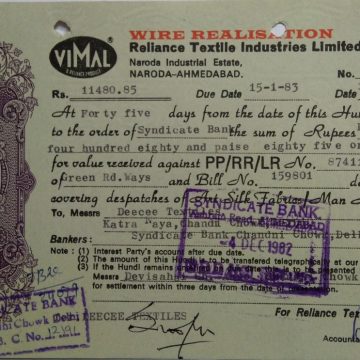 VIMAL
A RELIANCE PRODUCT
WIRE REALISATION
Reliance Textile Industries Limited
Naroda Industrial Estate,
NARODA-AHMEDABAD.
No.
Rs. 11480.85 Due Date 15-1-83 Date
At Forty five days from the date of this Hu
to the order of Syndicate Bank the sum of Rupees
four hundred eighty and paise eighty five on
for value received against PP/RR/LR No. 8741
of Green Rd.Ways and Bill No. 159801 d
covering despatches of Art Silk Fabrics/Man
To, Messrs Deecee Tex
Katra Naya, Chandni Chowk,
Bankers : Syndicate Bank, Chandni Chowk, Del
Note : (1) Interest Party's account after due date.
(2) The amount of this Hundi to be transfered telegraphically at
(3) If the Hundi remains after due date this is to be presented
for settlement within three days from the due date to
Messrs Devisahai howk
SYNDICATE BANK
Road, AHMEDABAD
-4 DEC 1982
ATE BANK
ni Chowk Delhi
B. C. No. 12191
DEECEE TEXTILES
For Reliance Text
Accounta